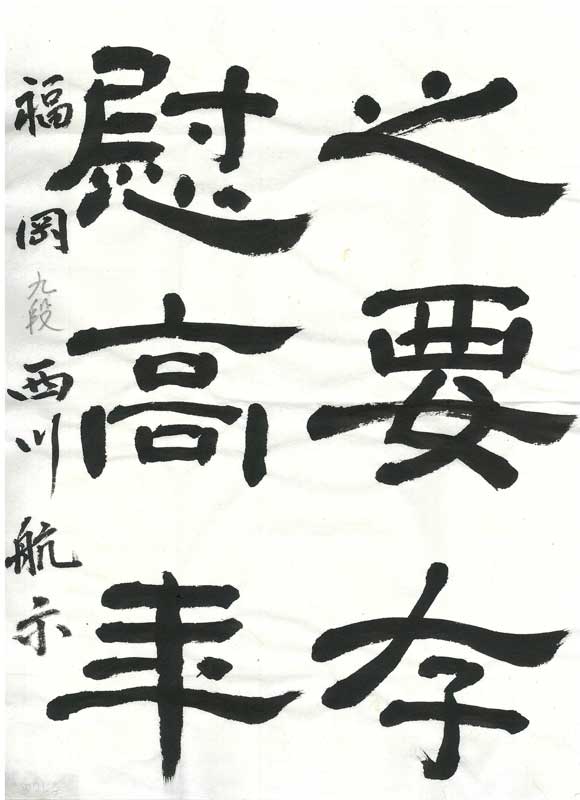 之要存
慰高年
福岡 九段 西川航示